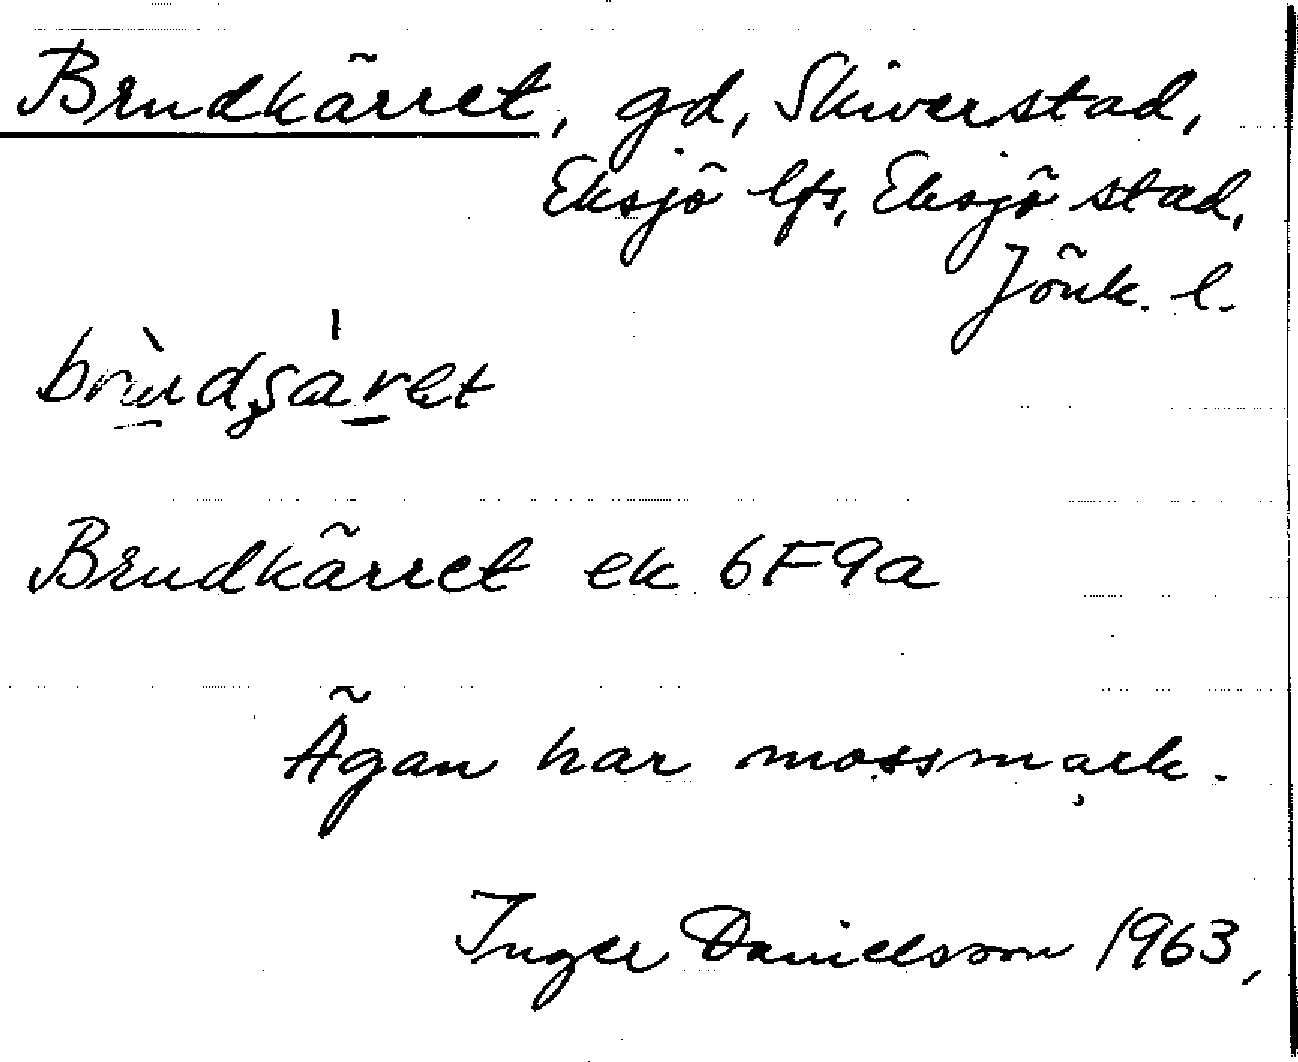 Brudkärret, gd, Skiverstad,
Eksjö lfs, Eksjö stad,
Jönk. l.
Brudkärret ek 6F9a
Ägan har mossmark.
Inger Danielsson 1963,